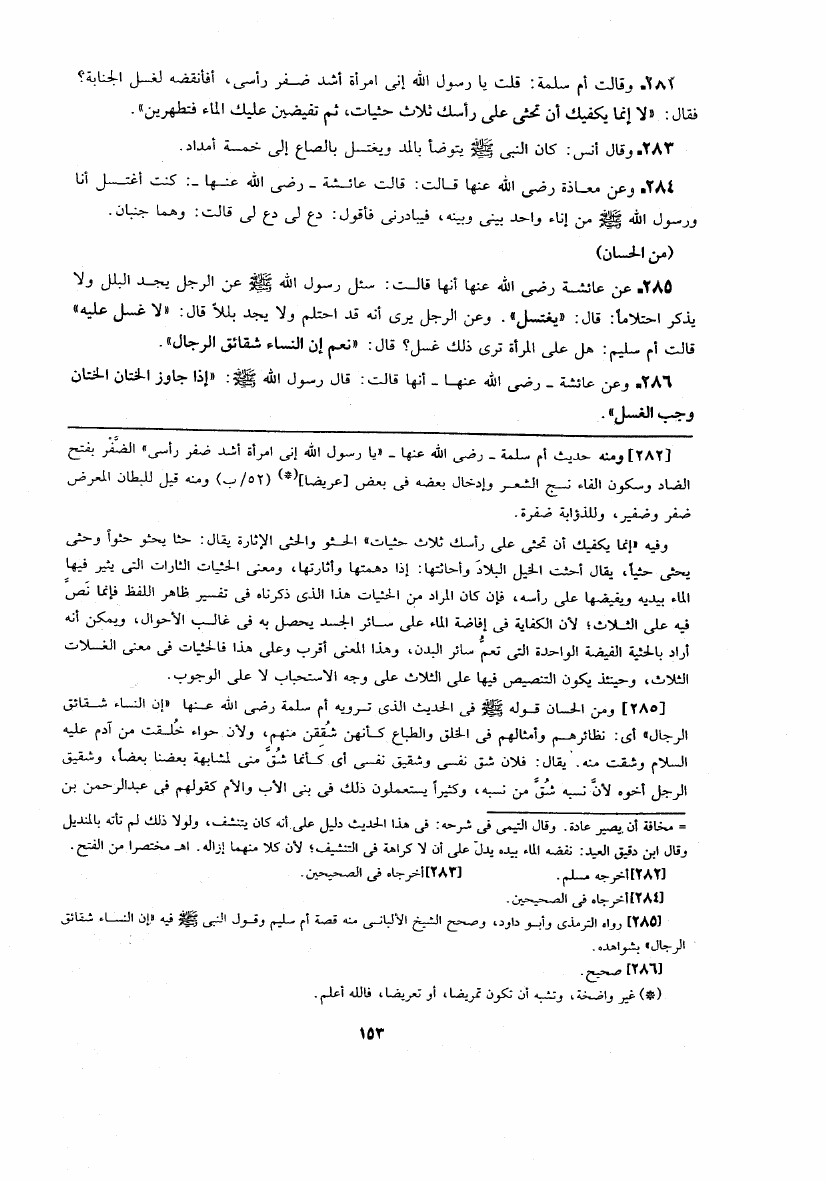 ٢٨٢. وقالت أم سلمة: قلت يا رسول الله إنى امرأة أشد ضفر رأسى، أفأنقضه لغسل الجنابة؟
فقال: «لا إنما يكفيك أن تحثى على رأسك ثلاث حثيات، ثم تفيضين عليك الماء فتطهرين».
٢٨٣. وقال أنس: كان النبى ﷺ يتوضأ بالمد ويغتسل بالصاع إلى خمسة أمداد.
٢٨٤. وعن معاذة رضى الله عنها قالت: قالت عائشة ـ رضى الله عنها ـ: كنت أغتسل أنا
ورسول الله ﷺ من إناء واحد بينى وبينه، فيبادرنى فأقول: دع لى دع لى قالت: وهما جنبان.
(من الحسان)
٢٨٥. عن عائشة رضى الله عنها أنها قالت: سئل رسول الله ﷺ عن الرجل يجد البلل ولا
يذكر احتلاماً: قال: «يغتسل». وعن الرجل يرى أنه قد احتلم ولا يجد بللاً قال: «لا غسل عليه»
قالت أم سليم: هل على المرأة ترى ذلك غسل؟ قال: «نعم إن النساء شقائق الرجال».
٢٨٦. وعن عائشة ـ رضى الله عنها ـ أنها قالت: قال رسول الله ﷺ: «إذا جاوز الختان الختان
وجب الغسل».
[٢٨٢] ومنه حديث أم سلمة ـ رضى الله عنها ـ «يا رسول الله إنى امرأة أشد ضفر رأسى» الضَّفْر بفتح
الضاد وسكون الفاء نسج الشعر وإدخال بعضه فى بعض [عريضا](*) (٥٢/ب) ومنه قيل للبطان المعرض
ضفر وضفير، وللذؤابة ضفرة.
وفيه «إنما يكفيك أن تحثى على رأسك ثلاث حثيات» الحثو والحثى الإثارة يقال: حثا يحثو حثواً وحثى
يحثى حثياً، يقال أحثت الخيل البلادَ وأحاثتها: إذا دهمتها وأثارتها، ومعنى الحثيات الثارات التى يثير فيها
الماء بيديه ويفيضها على رأسه، فإن كان المراد من الحثيات هذا الذى ذكرناه فى تفسير ظاهر اللفظ فإنما نَصَّ
فيه على الثلاث؛ لأن الكفاية فى إفاضة الماء على سائر الجسد يحصل به فى غالب الأحوال، ويمكن أنه
أراد بالحثية الفيضة الواحدة التى تعمُّ سائر البدن، وهذا المعنى أقرب وعلى هذا فالحثيات فى معنى الغسلات
الثلاث، وحينئذ يكون التنصيص فيها على الثلاث على وجه الاستحباب لا على الوجوب.
[٢٨٥] ومن الحسان قوله ﷺ فى الحديث الذى ترويه أم سلمة رضى الله عنها «إن النساء شقائق
الرجال» أى: نظائرهم وأمثالهم فى الخلق والطباع كأنهن شُقِقن منهم، ولأن حواء خُلقت من آدم عليه
السلام وشقت منه. يقال: فلان شق نفسى وشقيق نفسى أى كأنما شُقَّ منى لمشابهة بعضنا بعضاً، وشقيق
الرجل أخوه لأنَّ نسبه شُقَّ من نسبه، وكثيراً يستعملون ذلك فى بنى الأب والأم كقولهم فى عبدالرحمن بن
= مخافة أن يصير عادة. وقال التيمى فى شرحه: فى هذا الحديث دليل على أنه كان يتنشف، ولولا ذلك لم تأته بالمنديل
وقال ابن دقيق العيد: نفضه الماء بيده يدلّ على أن لا كراهة فى التنشيف؛ لأن كلا منهما إزاله. اهـ مختصرا من الفتح.
[٢٨٢] أخرجه مسلم. [٢٨٣] أخرجاه فى الصحيحين.
[٢٨٤] أخرجاه فى الصحيحين.
[٢٨٥] رواه الترمذى وأبو داود، وصحح الشيخ الألبانى منه قصة أم سليم وقول النبى ﷺ فيه «إن النساء شقائق
الرجال» بشواهده.
[٢٨٦] صحيح.
(*) غير واضحة، وتشبه أن تكون تمريضا، أو تعريضا، فالله أعلم.
١٥٣